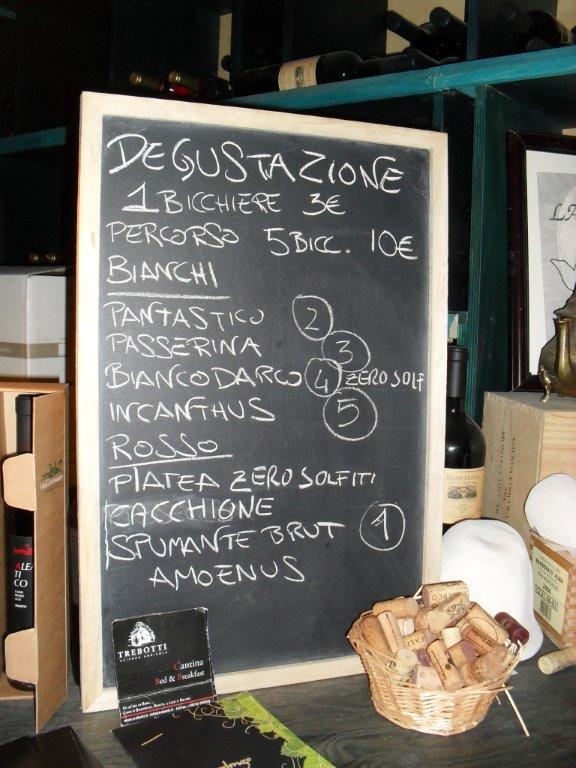 DEGUSTAZIONE
1 BICCHIERE 3€
PERCORSO 5 BICC. 10€
BIANCHI
PANTASTICO 2
PASSERINA 3
BIANCODARCO 4 ZERO SOLF
INCANTHUS 5
ROSSO
PLATEA ZERO SOLFITI
CACCHIONE
SPUMANTE BRUT 1
AMOENUS
TREBOTTI
AZIENDA AGRICOLA
Cantina
Bed & Breakfast
ALEA
TI
CO
LA